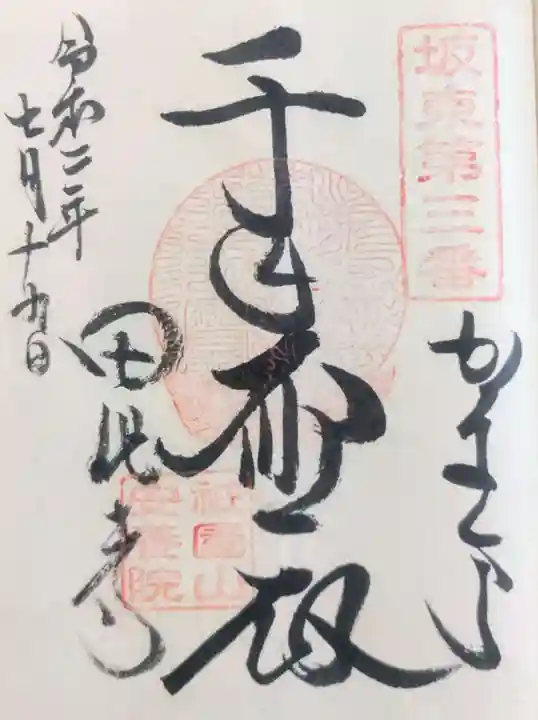 坂東第三番
かまくら
千手大悲殿
田代寺
令和二年
七月十九日
祇園山
安養院